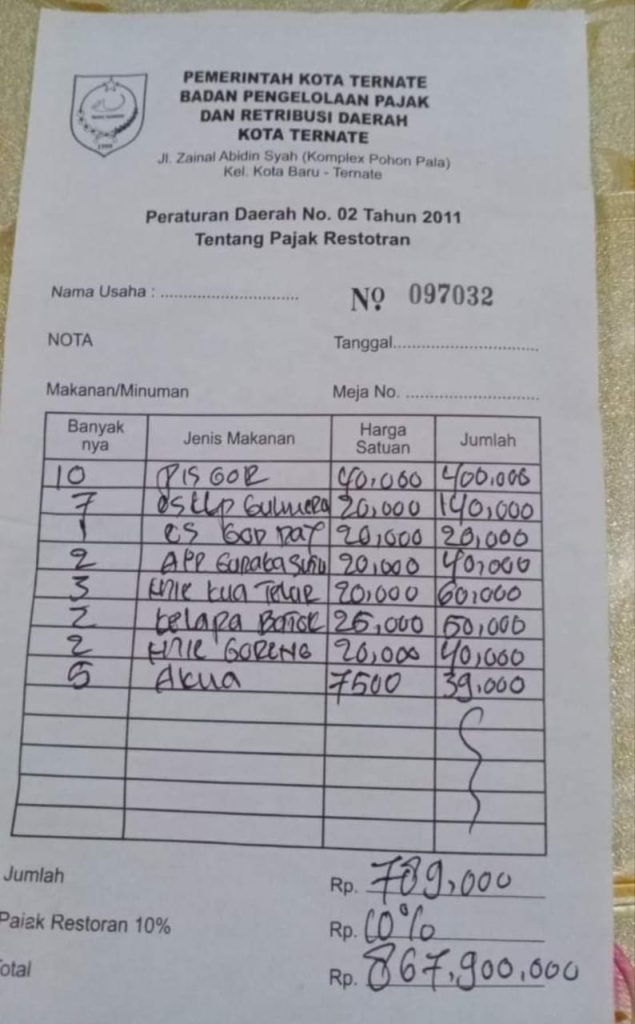 PEMERINTAH KOTA TERNATE
BADAN PENGELOLAAN PAJAK
DAN RETRIBUSI DAERAH
KOTA TERNATE
Jl. Zainal Abidin Syah (Komplex Pohon Pala)
Kel. Kota Baru - Ternate
Peraturan Daerah No. 02 Tahun 2011
Tentang Pajak Restotran
Nama Usaha : ..............................
Nº 097032
NOTA
Tanggal..............................
Makanan/Minuman
Meja No. ............................
Banyak nya Jenis Makanan Harga Satuan Jumlah
10 PIS GOR 40,000 400.000
7 20,000 140,000
1 20,000 20,000
2 20,000 40,000
3 kua Telur 20,000 60,000
2 kelapa 25,000 50,000
2 MIE GORENG 20,000 40,000
5 Akua 7500 39.000
Jumlah Rp. 789,000
Pajak Restoran 10% Rp. 10%
otal Rp. 867,900,000